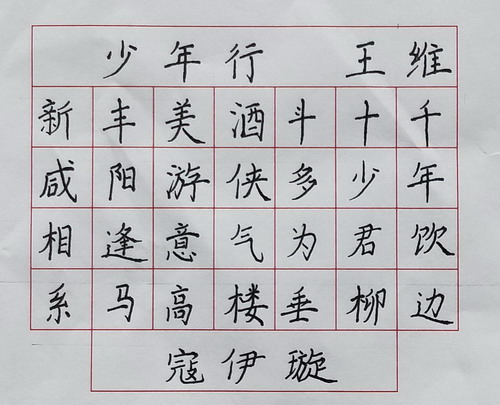 少年行 王维
新丰美酒斗十千
咸阳游侠多少年
相逢意气为君饮
系马高楼垂柳边
寇伊璇